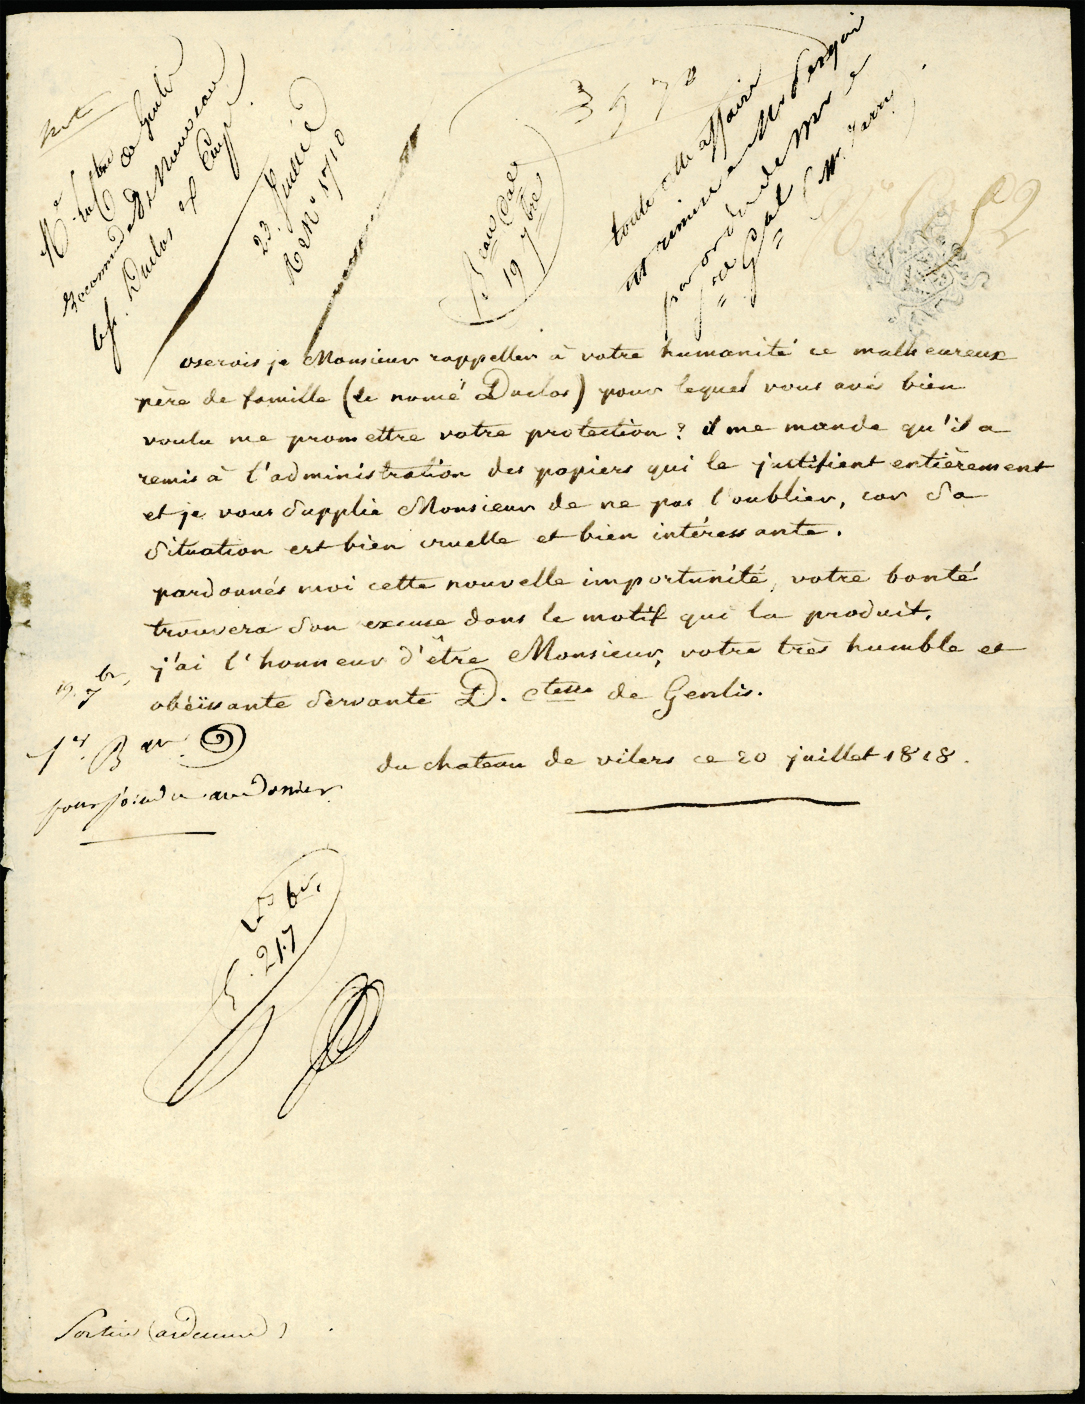 de Genlis
Recommande de Nouveau
Duclos
23 Juillet
N° 1710
3570
Bau Cal
19 7bre
toute cette affaire
par ordre de Mr
le Gal
52
oserois je Monsieur rappeller à votre humanité ce malheureux
père de famille (le nomé Duclos) pour lequel vous avés bien
voulu me promettre votre protection? il me mande qu'il a
remis à l'administration des papiers qui le justifient entièrement
et je vous supplie Monsieur de ne pas l'oublier, car sa
situation est bien cruelle et bien intéressante.
pardonnés moi cette nouvelle importunité, votre bonté
trouvera son excuse dans le motif qui la produit.
j'ai l'honneur d'être Monsieur, votre très humble et
obéïssante servante D. Ctesse de Genlis.
19. 7br,
1er Bau
pour joindre au dossier
du chateau de vilers ce 20 juillet 1818.
217